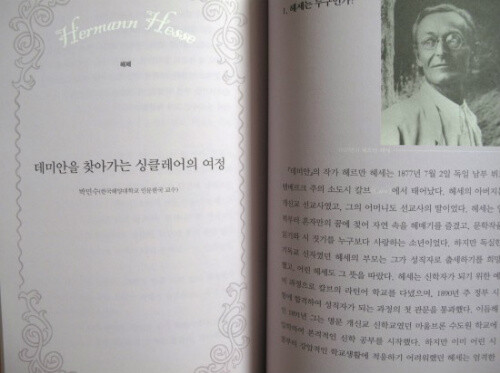 Hermann Hesse
헤세
데미안을 찾아가는 싱클레어의 여정
박민수(한국해양대학교 인문한국 교수)
1. 헤세는 누구인가?
『데미안』의 작가 헤르만 헤세는 1877년 7월 2일 독일 남부 뷔
템베르크 주의 소도시 칼브 에서 태어났다. 헤세의 아버지
개신교 선교사였고, 그의 어머니도 선교사의 딸이었다. 헤세는
혼자만의 꿈에 젖어 자연 속을 헤매기를 즐겼고, 문학작품
읽기와 시 짓기를 누구보다 사랑하는 소년이었다. 하지만 독실한
기독교 신자였던 헤세의 부모는 그가 성직자로 출세하기를 희망
했고, 어린 헤세도 그 뜻을 따랐다. 헤세는 신학자가 되기 위한 예
과정으로 칼브의 라틴어 학교를 다녔으며, 1890년 주 정부 시
험에 합격하여 성직자가 되는 과정의 첫 관문을 통과했다. 이듬해
인 1891년 그는 명문 개신교 신학교였던 마울브론 수도원 학교에
입학하여 본격적인 신학 공부를 시작했다. 하지만 이미 어린 시
절부터 강압적인 학교생활에 적응하기 어려워했던 헤세는 엄격한